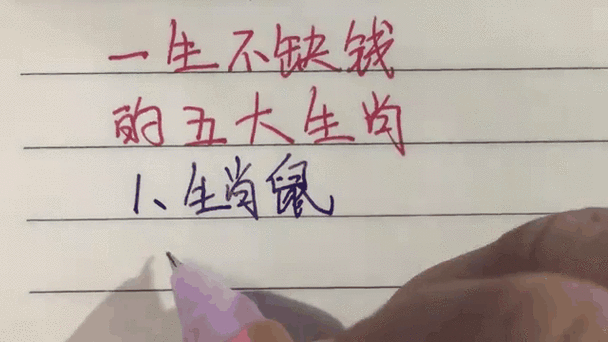 一生不缺钱
的五大生肖
1、生肖鼠